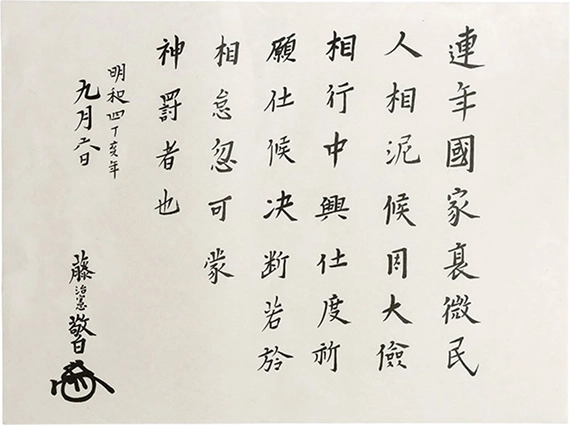 連年國家衰微民
人相泥候因大儉
相行中興仕度祈
願仕候决断若於
相怠忽可蒙
神罰者也
明和四丁亥年
九月六日
藤治憲敬白